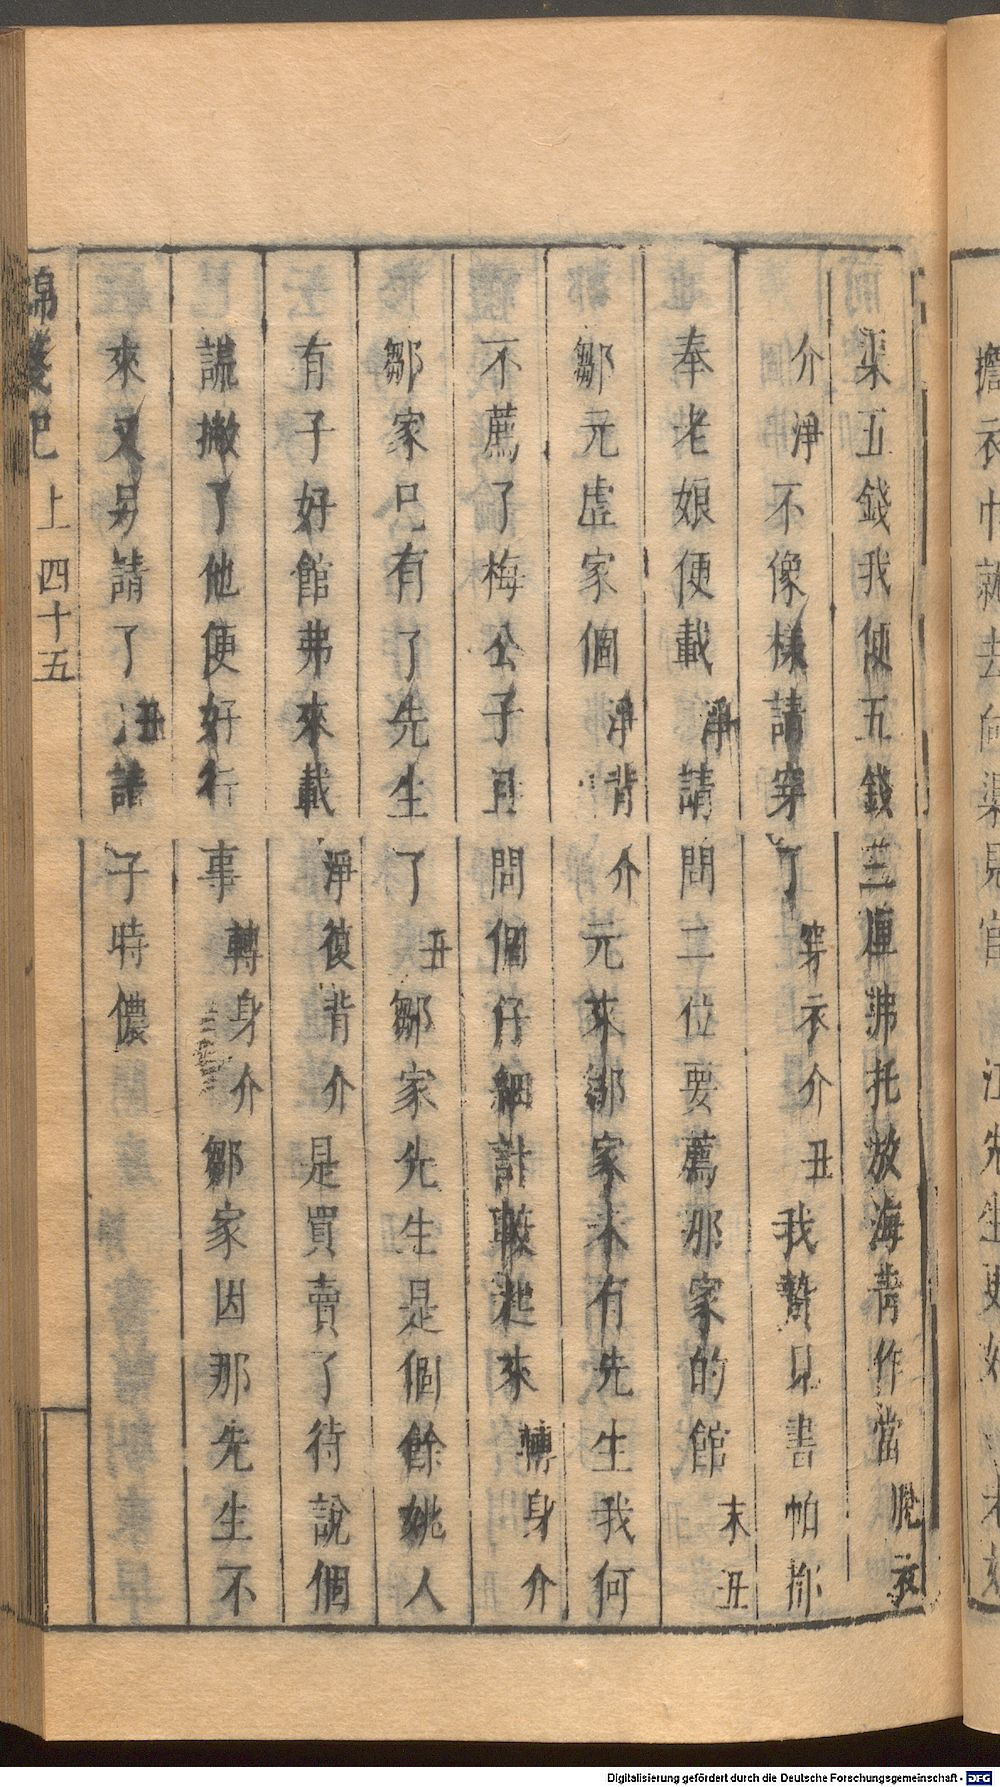 渠五錢我便五錢三厘弗托放海青作當脫衣
介淨不像樣請穿了穿衣介丑我贄見書帕都
奉老娘便載淨請問二位要薦那家的館末丑
鄒元虛家個淨背介元來鄒家未有先生我何
不薦了梅公子且問個仔細計較起來轉身介
鄒家已有了先生了丑鄒家先生是個餘姚人
有子好館弗來載淨復背介是買賣了待說個
謊撇了他便好行事轉身介鄒家因那先生不
來又另請了丑請子時儂
錦箋記 上 四十五
擔衣巾就去向渠見官 江先生更好 老
Digitalisierung gefördert durch die Deutsche Forschungsgemeinschaft - DFG